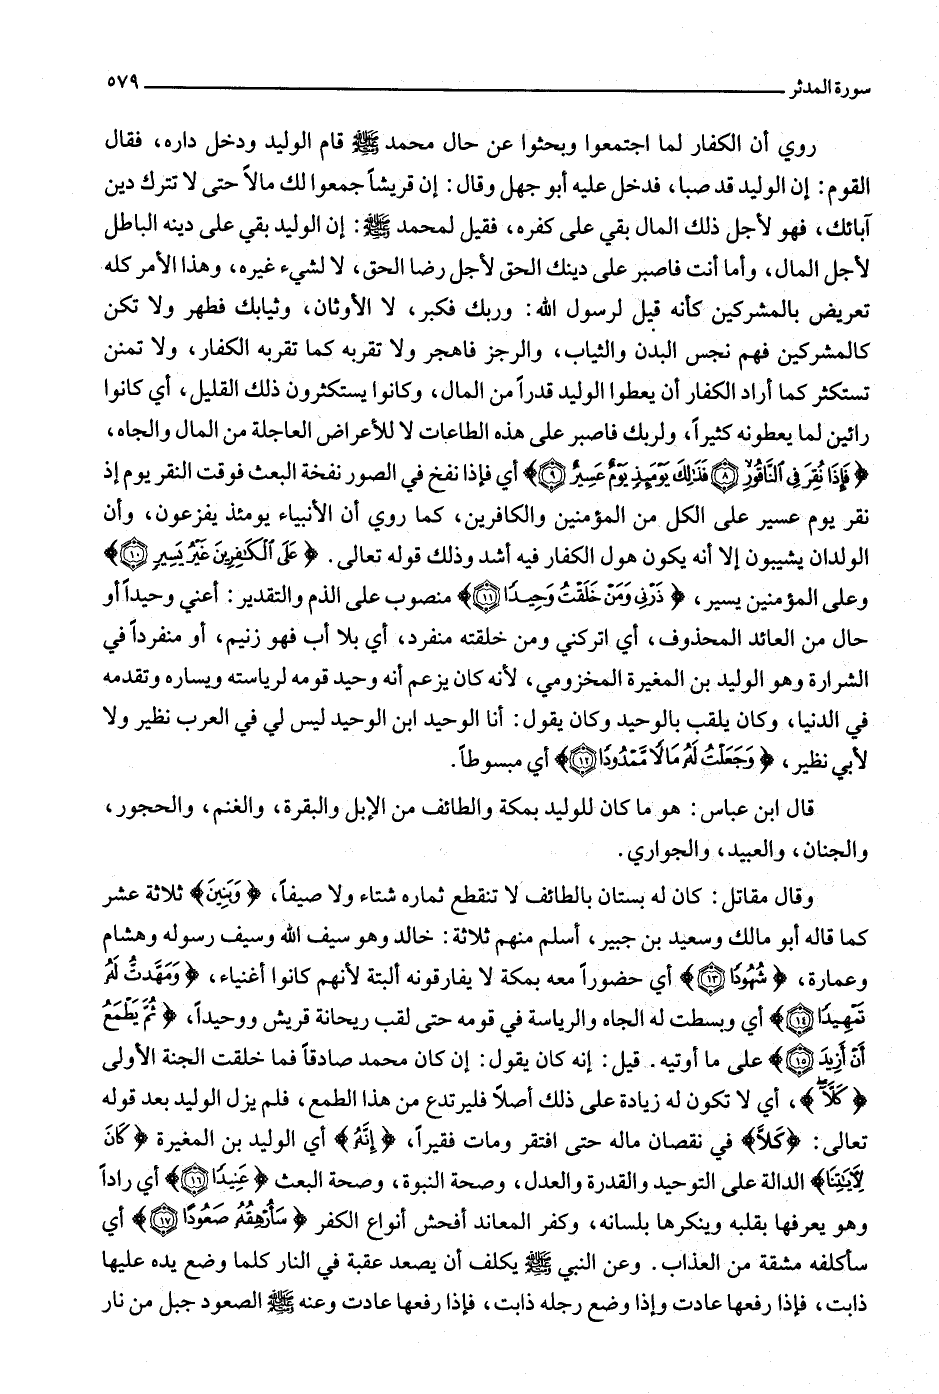 سورة المدثر ٥٧٩
روي أن الكفار لما اجتمعوا وبحثوا عن حال محمد ﷺ قام الوليد ودخل داره، فقال
القوم: إن الوليد قد صبا، فدخل عليه أبو جهل وقال: إن قريشاً جمعوا لك مالاً حتى لا تترك دين
آبائك، فهو لأجل ذلك المال بقي على كفره، فقيل لمحمد ﷺ: إن الوليد بقي على دينه الباطل
لأجل المال، وأما أنت فاصبر على دينك الحق لأجل رضا الحق، لا لشيء غيره، وهذا الأمر كله
تعريض بالمشركين كأنه قيل لرسول الله: وربك فكبر، لا الأوثان، وثيابك فطهر ولا تكن
كالمشركين فهم نجس البدن والثياب، والرجز فاهجر ولا تقربه كما تقربه الكفار، ولا تمنن
تستكثر كما أراد الكفار أن يعطوا الوليد قدراً من المال، وكانوا يستكثرون ذلك القليل، أي كانوا
رائين لما يعطونه كثيراً، ولربك فاصبر على هذه الطاعات لا للأعراض العاجلة من المال والجاه،
﴿فَإِذَا نُقِرَ فِي ٱلنَّاقُورِ ۝٨ فَذَٰلِكَ يَوْمَئِذٍ يَوْمٌ عَسِيرٌ ۝٩﴾ أي فإذا نفخ في الصور نفخة البعث فوقت النقر يوم إذ
نقر يوم عسير على الكل من المؤمنين والكافرين، كما روي أن الأنبياء يومئذ يفزعون، وأن
الولدان يشيبون إلا أنه يكون هول الكفار فيه أشد وذلك قوله تعالى. ﴿عَلَى ٱلْكَٰفِرِينَ غَيْرُ يَسِيرٍ ۝١٠﴾
وعلى المؤمنين يسير، ﴿ذَرْنِي وَمَنْ خَلَقْتُ وَحِيدًا ۝١١﴾ منصوب على الذم والتقدير: أعني وحيداً أو
حال من العائد المحذوف، أي اتركني ومن خلقته منفرد، أي بلا أب فهو زنيم، أو منفرداً في
الشرارة وهو الوليد بن المغيرة المخزومي، لأنه كان يزعم أنه وحيد قومه لرياسته ويساره وتقدمه
في الدنيا، وكان يلقب بالوحيد وكان يقول: أنا الوحيد ابن الوحيد ليس لي في العرب نظير ولا
لأبي نظير، ﴿وَجَعَلْتُ لَهُۥ مَالًا مَّمْدُودًا ۝١٢﴾ أي مبسوطاً.
قال ابن عباس: هو ما كان للوليد بمكة والطائف من الإبل والبقرة، والغنم، والحجور،
والجنان، والعبيد، والجواري.
وقال مقاتل: كان له بستان بالطائف لا تنقطع ثماره شتاء ولا صيفاً، ﴿وَبَنِينَ﴾ ثلاثة عشر
كما قاله أبو مالك وسعيد بن جبير، أسلم منهم ثلاثة: خالد وهو سيف الله وسيف رسوله وهشام
وعمارة، ﴿شُهُودًا ۝١٣﴾ أي حضوراً معه بمكة لا يفارقونه ألبتة لأنهم كانوا أغنياء، ﴿وَمَهَّدتُّ لَهُۥ
تَمْهِيدًا ۝١٤﴾ أي وبسطت له الجاه والرياسة في قومه حتى لقب ريحانة قريش ووحيداً، ﴿ثُمَّ يَطْمَعُ
أَنْ أَزِيدَ ۝١٥﴾ على ما أوتيه. قيل: إنه كان يقول: إن كان محمد صادقاً فما خلقت الجنة الأولى
﴿كَلَّآ ۖ﴾، أي لا تكون له زيادة على ذلك أصلاً فليرتدع من هذا الطمع، فلم يزل الوليد بعد قوله
تعالى: ﴿كَلَّا﴾ في نقصان ماله حتى افتقر ومات فقيراً، ﴿إِنَّهُۥ﴾ أي الوليد بن المغيرة ﴿كَانَ
لِـَٔايَٰتِنَا﴾ الدالة على التوحيد والقدرة والعدل، وصحة النبوة، وصحة البعث ﴿عَنِيدًا ۝١٦﴾ أي راداً
وهو يعرفها بقلبه وينكرها بلسانه، وكفر المعاند أفحش أنواع الكفر ﴿سَأُرْهِقُهُۥ صَعُودًا ۝١٧﴾ أي
سأكلفه مشقة من العذاب. وعن النبي ﷺ يكلف أن يصعد عقبة في النار كلما وضع يده عليها
ذابت، فإذا رفعها عادت وإذا وضع رجله ذابت، فإذا رفعها عادت وعنه ﷺ الصعود جبل من نار